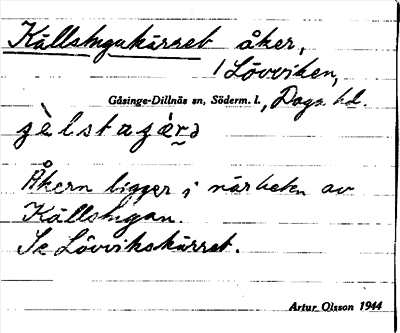 Källstugukärret åker,
i Lövviken,
Gåsinge-Dillnäs sn, Söderm. l., Daga hd.
Åkern ligger i närheten av
Källstugan.
Se Lövvikskärret.
Artur Olsson 1944